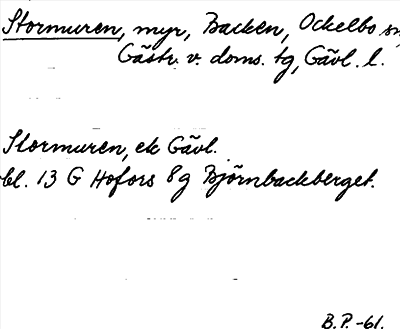 Stormuren, myr, Backen, Ockelbo sn,
Gästr. v. doms. tg, Gävl. l.
Stormuren, ek Gävl.
bl. 13 G Hofors 8g Björnbackberget.
B.P. -61.